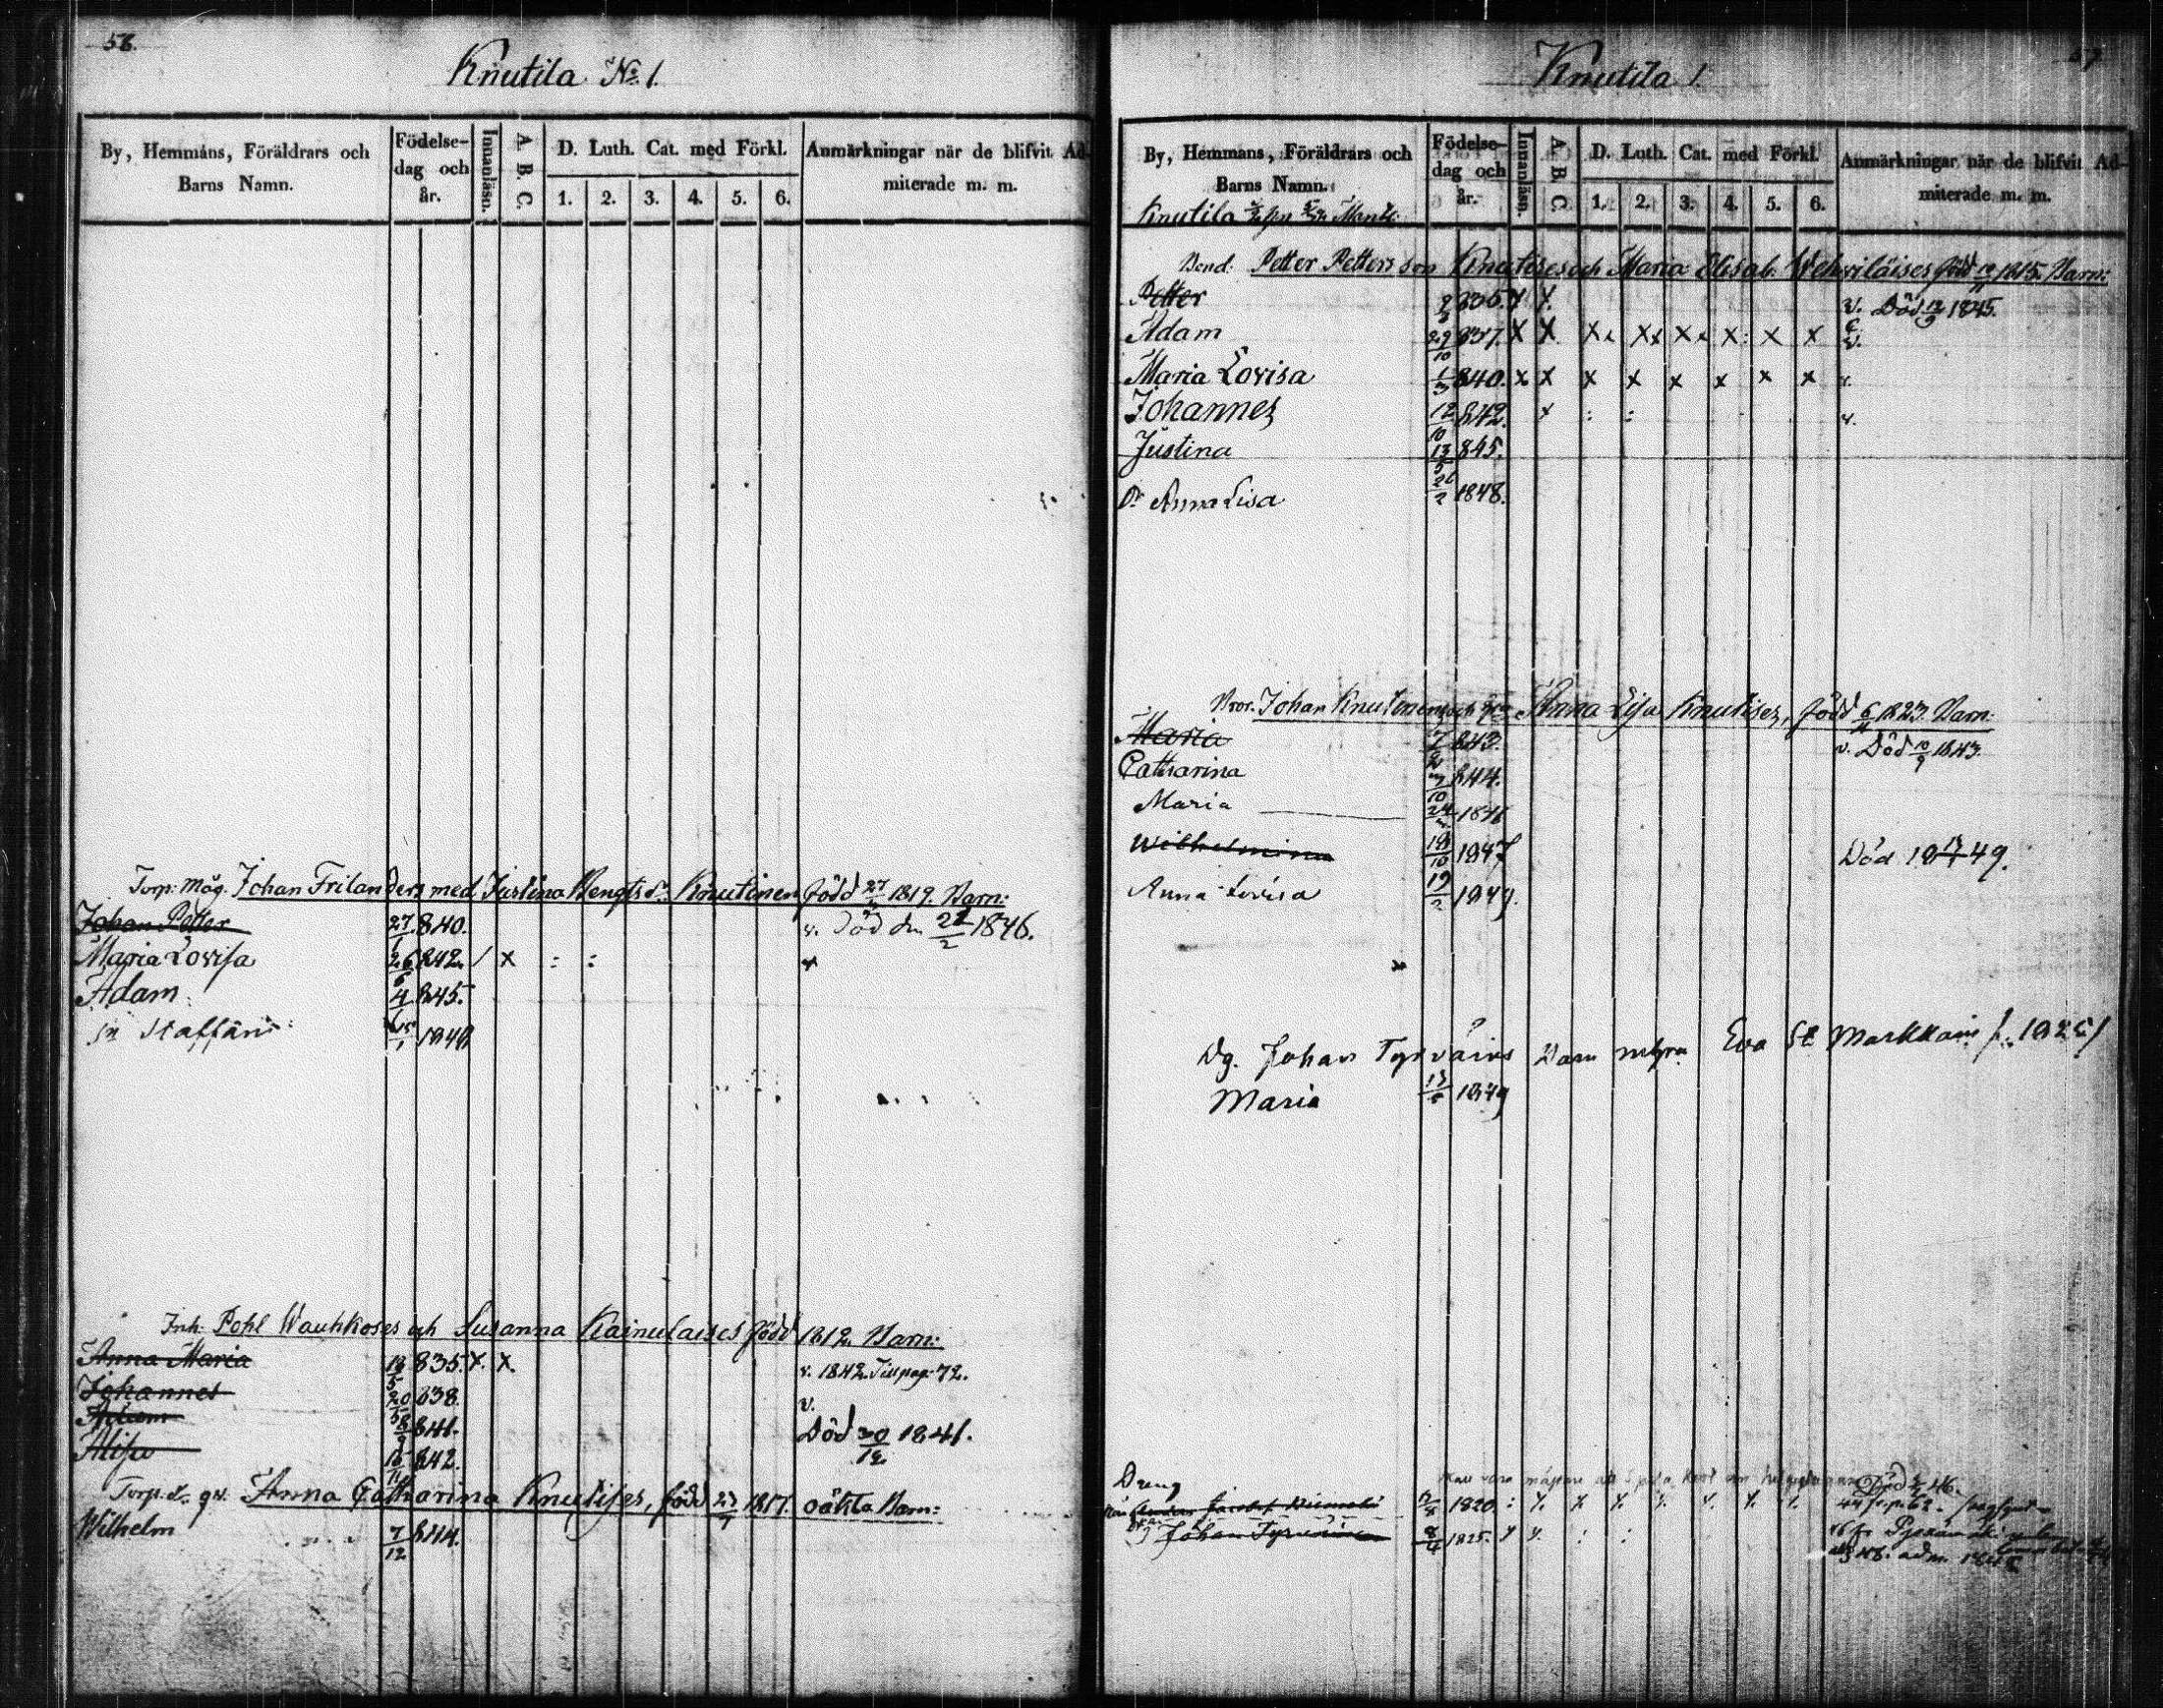 56.
Knutila No. 1.
By, Hemmans, Föräldrars och Barns Namn.
Födelse-dag och år.
Innanläsn.
A. B. C.
D. Luth. Cat. med Förkl.
1. 2. 3. 4. 5. 6.
Anmärkningar när de blifvit Admiterade m. m.
Torp: måg. Johan Frilanders med Justina Bengtsdr. Knutinen född 27 1819. Barn:
Johan Petter 27/1 840. v. Död den 21/2 1846.
Maria Lovisa 26/6 842. / x : :
Adam 4 845.
Staffan 1849
Inh: Pohl Wauhkoses och Susanna Kainulaises född 1812. Barn:
Anna Maria 18/5 835. X. X. v. 1842. Till pag. 72.
Johannes 20 838. v.
Adam 8/9 841. Död 30/12 1841.
Alisa 15/11 842.
Torp. d. Anna Catharina Knutises, född 23 1817. oäkta Barn:
Wilhelm 7/12 844.
57
Knutila 1.
By, Hemmans, Föräldrars och Barns Namn.
Födelse-dag och år.
Innanläsn.
A. B. C.
D. Luth. Cat. med Förkl.
1. 2. 3. 4. 5. 6.
Anmärkningar när de blifvit Admiterade m. m.
Knutila Mantl.
Bond: Petter Pettersson Knutises och Maria Elisab. född 1815. Barn:
Petter 835. X X. v. Död 12/9 1845.
Adam 29/10 837. X X. X x X x X x X : X X v.
Maria Lovisa 1/3 840. x X X X X X X X v.
Johannes 12/10 842. x : : v.
Justina 13/5 845.
Dr Anna Lisa 26/2 1848.
Bror. Johan Knutinen och Anna Lisa Knutises, född 6 1823. Barn:
Maria 7 843. v. Död 10/9 1843.
Catharina 3/10 844.
Maria 24 1846
Wilhelmina 19/10 1847 Död 1849.
Anna Lovisa 19/2 1849.
Dg. Johan Tyrväins Barn Eva St Markkain f. 1825
Maria 13 1849
Dreng
1820. : X. X X. X. X. X. X. Död 46.
Johan Tyrväinen 8/4 1825. X X. : : adm. 184